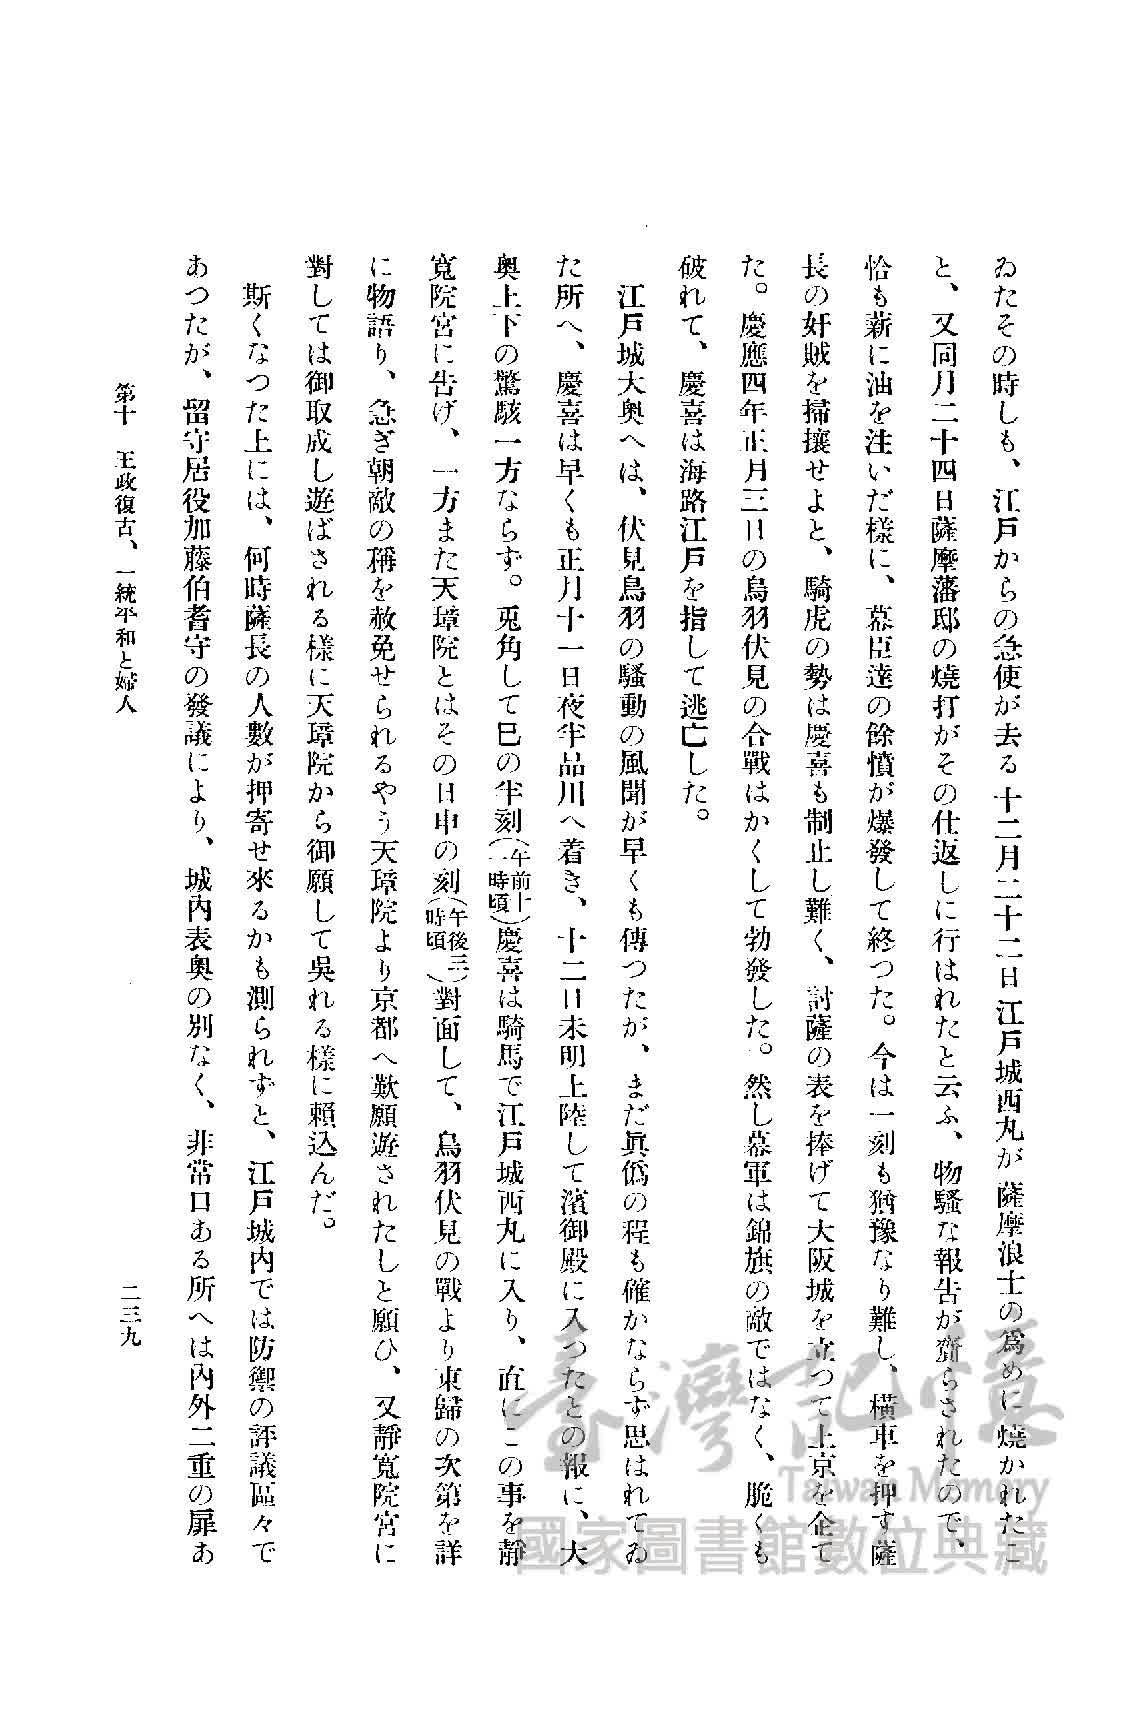 ゐたその時しも、江戸からの急使が去る十二月二十二日江戸城西丸が薩摩浪士の爲めに燒かれたこ
と、又同月二十四日薩摩藩邸の燒打がその仕返しに行はれたと云ふ、物騷な報告が齎らされたので、
恰も薪に油を注いだ樣に、幕臣達の餘憤が爆發して終つた。今は一刻も猶豫なり難し、橫車を押す薩
長の奸賊を掃攘せよと、騎虎の勢は慶喜も制止し難く、討薩の表を捧げて大阪城を立つて上京を企て
た。慶應四年正月三日の鳥羽伏見の合戰はかくして勃發した。然し幕軍は錦旗の敵ではなく、脆くも
破れて、慶喜は海路江戸を指して逃亡した。
江戸城大奧へは、伏見鳥羽の騷動の風聞が早くも傳つたが、まだ眞僞の程も確かならず思はれてゐ
た所へ、慶喜は早くも正月十一日夜半品川へ着き、十二日未明上陸して濱御殿に入つたとの報に、大
奧上下の驚駭一方ならず。兎角して巳の半刻(午前十一時頃)慶喜は騎馬で江戸城西丸に入り、直にこの事を靜
寬院宮に告げ、一方また天璋院とはその日申の刻(午後三時頃)對面して、鳥羽伏見の戰より東歸の次第を詳
に物語り、急ぎ朝敵の稱を赦免せられるやう天璋院より京都へ歎願遊されたしと願ひ、又靜寬院宮に
對しては御取成し遊ばされる樣に天璋院から御願して吳れる樣に賴込んだ。
斯くなつた上には、何時薩長の人數が押寄せ來るかも測られずと、江戸城內では防禦の評議區々で
あつたが、留守居役加藤伯耆守の發議により、城內表奧の別なく、非常口ある所へは內外二重の扉あ
第十 王政復古、一統平和と婦人
二三九
臺灣記憶
Taiwan Memory
國家圖書館數位典藏